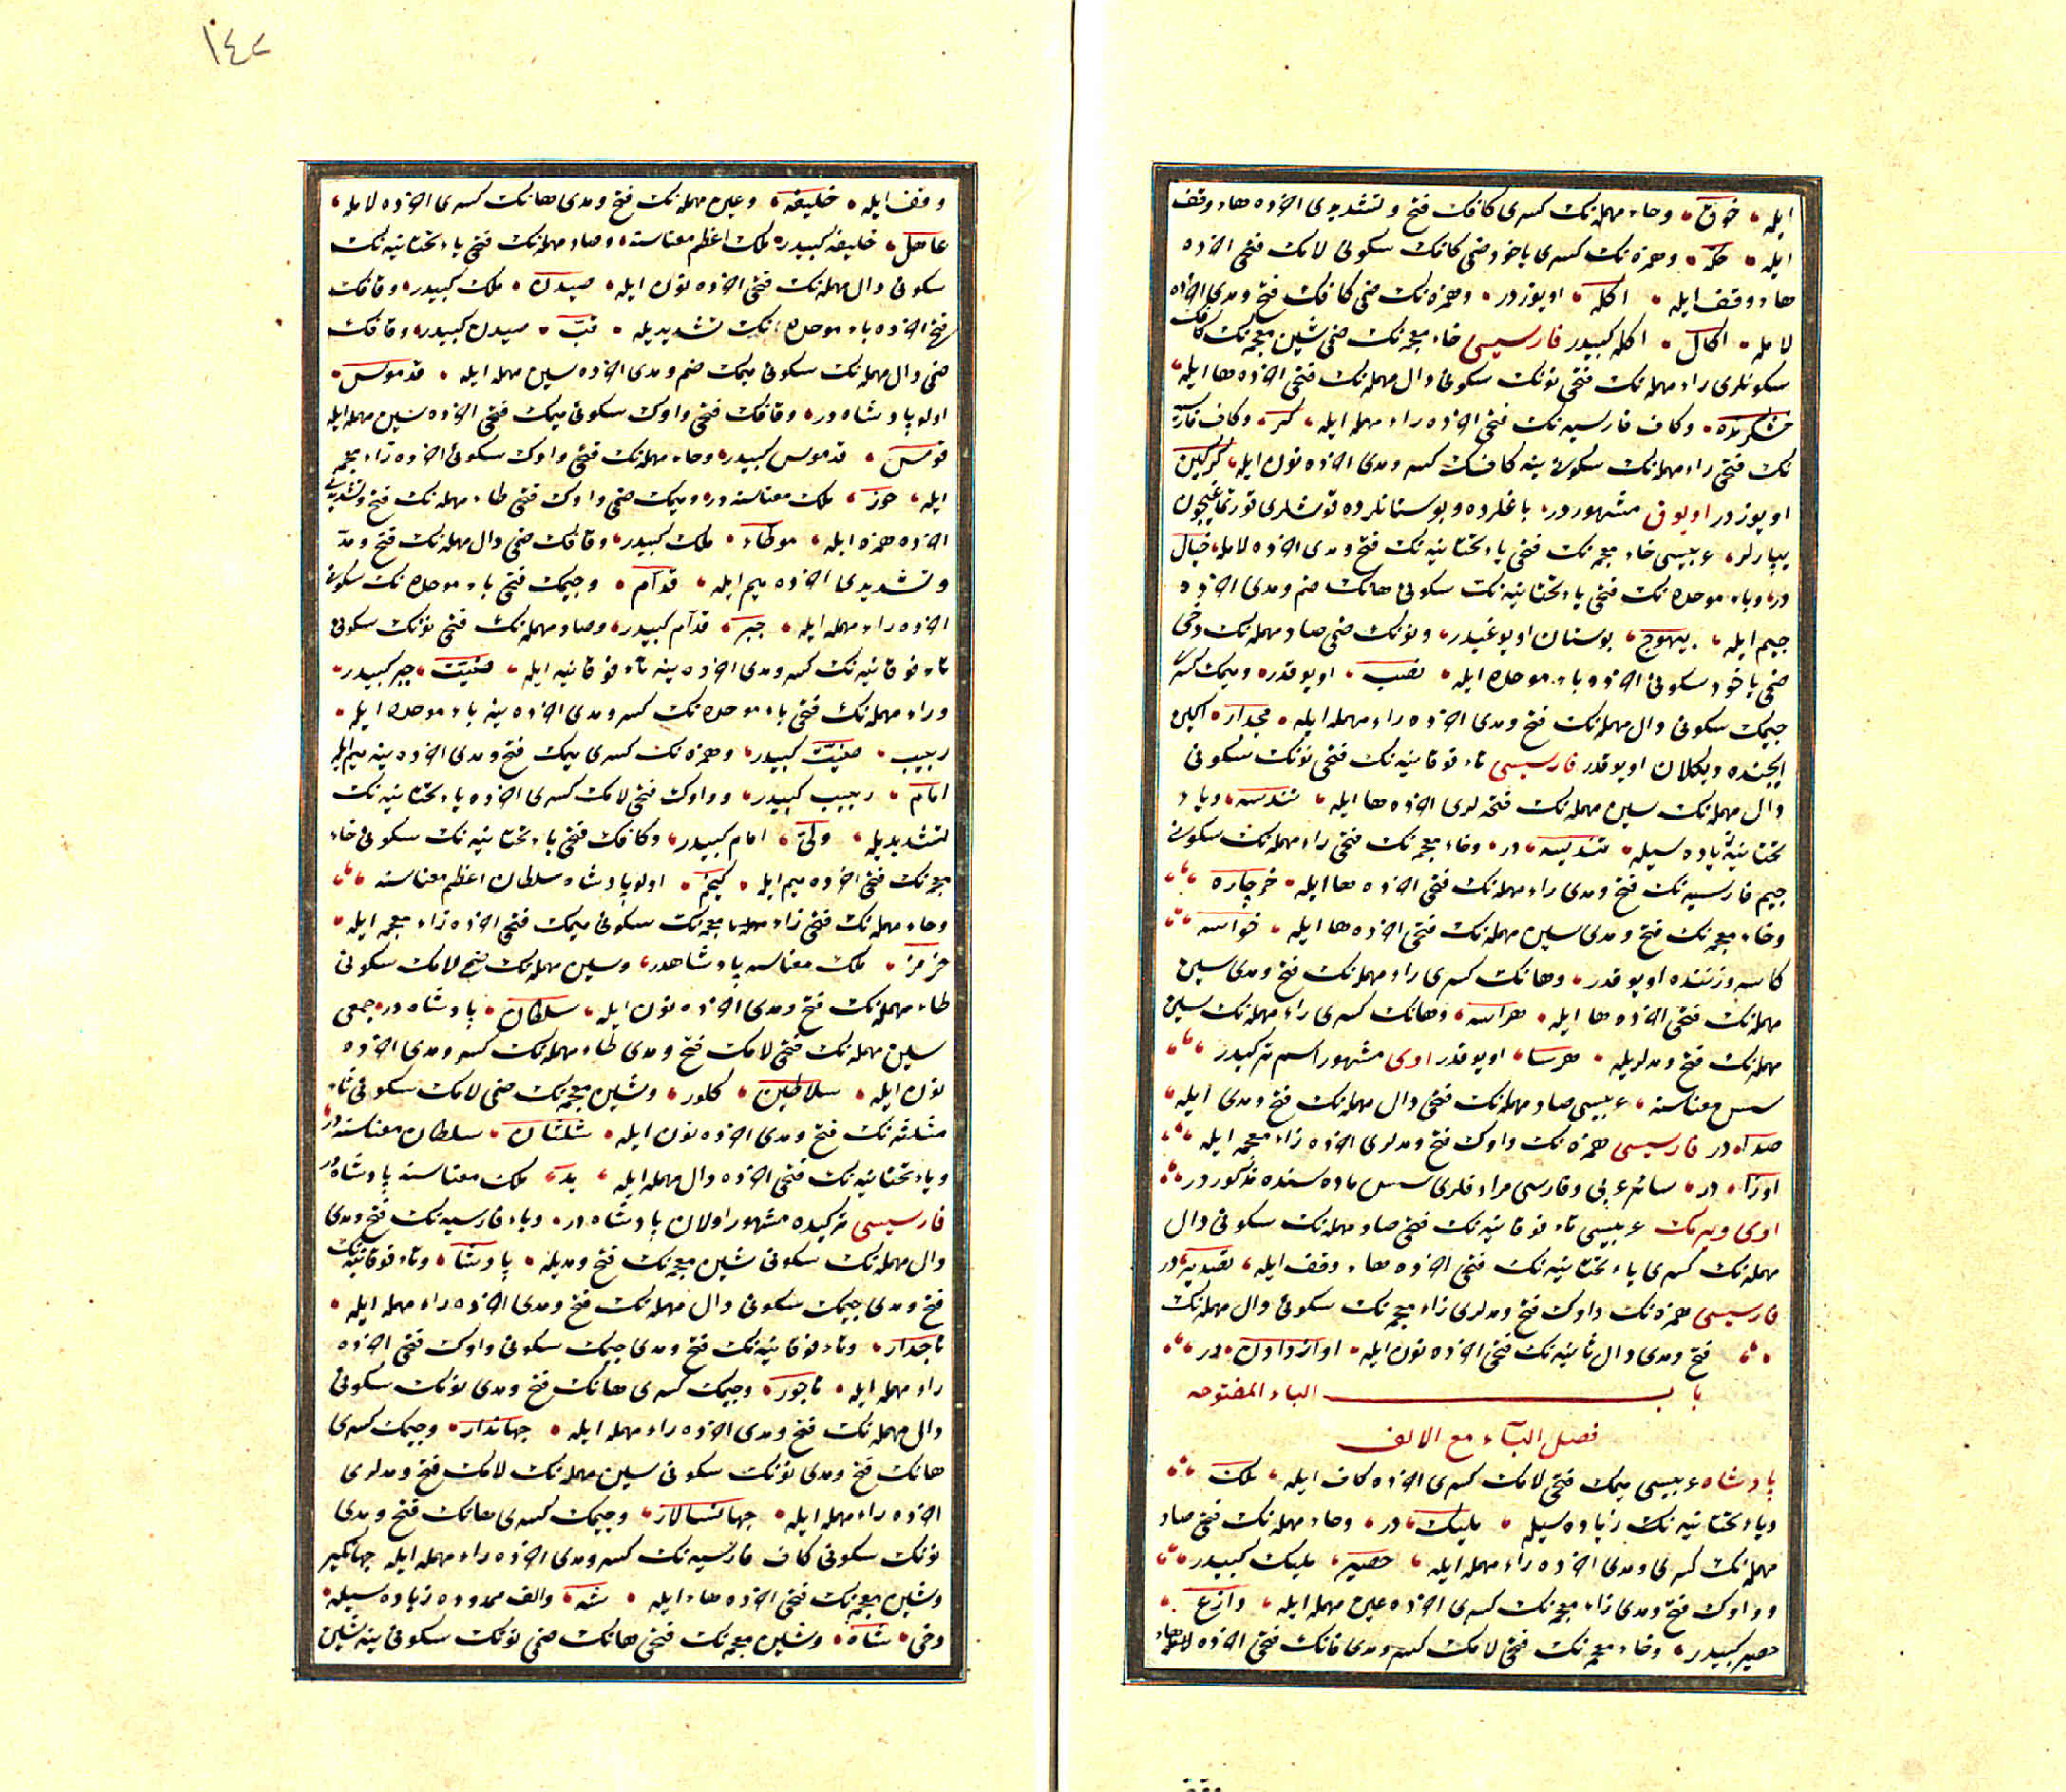 ایله خوق وحاء مهمله‌نک کسری کافک فتح وتشدیدی اخرده هاء وقف
ایله حکه وهمزه‌نک کسری یاخود ضمی کافک سکونی لامک فتحی اخرده
هاء وقف ایله اکله اویوزدر وهمزه‌نک ضمی کافک فتح ومدی اخرده
لامله اکال اکله کبیدر فارسیسی خاء معجمه‌نک ضمی شین معجمه‌نک کافک
سکونلری راء مهمله‌نک فتحی نونک سکونی دال مهمله‌نک فتحی اخرده ها ایله
خشکرنده وکاف فارسیه‌نک فتحی اخرده راء مهمله ایله کر وکاف فارسیه
نک فتحی راء مهمله‌نک سکونی ینه کافک کسر ومدی اخرده نون ایله کرکین
اویوزدر اویوق مشهوردر باغلرده وبوستانلرده قوشلری قورتمغیچون
یپارلر عربیسی خاء معجمه‌نک فتحی یاء تحتانیه‌نک فتح ومدی اخرده لامله خیال
در وباء موحده‌نک فتحی یاء تحتانیه‌نک سکونی هانک ضم ومدی اخرده
جیم ایله بیهوج بوستان اویوغیدر ونونک ضمی صاد مهمله‌نک دخی
ضمی یاخود سکونی اخرده باء موحده ایله نصب اویوقدر ومیمک کسری
جیمک سکونی دال مهمله‌نک فتح ومدی اخرده راء مهمله ایله مجدار اکین
ایچنده دیکلان اویوقدر فارسیسی تاء فوقانیه‌نک فتحی نونک سکونی
دال مهمله‌نک سین مهمله‌نک فتحه‌لری اخرده ها ایله تندسه ویاء
تحتانیه زیاده‌سیله تندیسه در وخاء معجمه‌نک فتحی راء مهمله‌نک سکونی
جیم فارسیه‌نک فتح ومدی راء مهمله‌نک فتحی اخرده ها ایله خرچاره
وخاء معجمه‌نک فتح ومدی سین مهمله‌نک فتحی اخرده ها ایله خواسه
کاسه وزننده اویوقدر وهانک کسری راء مهمله‌نک فتح ومدی سین
مهمله‌نک فتحی اخرده ها ایله هراسه وهانک کسری راء مهمله‌نک سین
مهمله‌نک فتح ومدلریله هرسا اویوقدر اوی مشهور اسم ترکیدر
سس معناسنه عربیسی صاد مهمله‌نک فتحی دال مهمله‌نک فتح ومدی ایله
صداء در فارسیسی همزه‌نک واوک فتح ومدلری اخرده زاء معجمه ایله
اواز در سائر عربی وفارسی مرادفلری سس ماده‌سنده مذکوردر
اوی ویرمک عربیسی تاء فوقانیه‌نک فتحی صاد مهمله‌نک سکونی دال
مهمله‌نک کسری یاء تحتانیه‌نک فتحی اخرده هاء وقف ایله تصدیه در
فارسیسی همزه‌نک واوک فتح ومدلری زاء معجمه‌نک سکونی دال مهمله‌نک
فتح ومدی دال ثانیه‌نک فتحی اخرده نون ایله اواز دادن در
باب الباء المفتوحه
فصل الباء مع الالف
پادشاه عربیسی میمک فتحی لامک کسری اخرده کاف ایله ملک
ویاء تحتانیه‌نک زیاده‌سیله ملیک در وحاء مهمله‌نک فتحی صاد
مهمله‌نک کسری ومدی اخرده راء مهمله ایله حصیر ملیک کبیدر
وواوک فتح ومدی زاء معجمه‌نک کسری اخرده عین مهمله ایله وازع
حصیر کبیدر وخاء معجمه‌نک فتحی لامک کسر ومدی فانک فتحی اخرده هاء
وقف
١٤٢
وقف ایله خلیفه وعین مهمله‌نک فتح ومدی هانک کسری اخرده لامله
عاهل خلیفه کبیدر ملک اعظم معناسنه وصاد مهمله‌نک فتحی یاء تحتانیه‌نک
سکونی دال مهمله‌نک فتحی اخرده نون ایله صیدن ملک کبیدر وقافک
فتحی اخرده باء موحده‌نک تشدیدیله قب صیدن کبیدر وقافک
ضمی دال مهمله‌نک سکونی میمک ضم ومدی اخرده سین مهمله ایله قدموس
اولو پادشاه در وقافک فتحی واوک سکونی میمک فتحی اخرده سین مهمله ایله
قومس قدموس کبیدر وحاء مهمله‌نک فتحی واوک سکونی اخرده زاء معجمه
ایله حوز ملک معناسنه در ومیمک ضمی واوک فتحی طاء مهمله‌نک فتح وتشدیدی
اخرده همزه ایله موطاء ملک کبیدر وقافک ضمی دال مهمله‌نک فتح ومد
وتشدیدی اخرده میم ایله قدام وجیمک فتحی باء موحده‌نک سکونی
اخرده راء مهمله ایله جبر قدام کبیدر وصاد مهمله‌نک فتحی نونک سکونی
تاء فوقانیه‌نک کسر ومدی اخرده ینه تاء فوقانیه ایله صنتیت جبر کبیدر
وراء مهمله‌نک فتحی باء موحده‌نک کسر ومدی اخرده ینه باء موحده ایله
ربیب صنتیت کبیدر وهمزه‌نک کسری میمک فتح ومدی اخرده ینه میم ایله
امام ربیب کبیدر وواوک فتحی لامک کسری اخرده یاء تحتانیه‌نک
تشدیدیله ولی امام کبیدر وکافک فتحی یاء تحتانیه‌نک سکونی خاء
معجمه‌نک فتحی اخرده میم ایله کیخم اولو پادشاه سلطان اعظم معناسنه
وحاء مهمله‌نک فتحی زاء معجمه‌نک سکونی میمک فتحی اخرده زاء معجمه ایله
حزمز ملک معناسنه پادشاهدر وسین مهمله‌نک ضمی لامک سکونی
طاء مهمله‌نک فتح ومدی اخرده نون ایله سلطان پادشاه در جمعی
سین مهمله‌نک فتحی لامک فتح ومدی طاء مهمله‌نک کسر ومدی اخرده
نون ایله سلاطین کلور وشین معجمه‌نک ضمی لامک سکونی ثاء
مثلثه‌نک فتح ومدی اخرده نون ایله شلثان سلطان معناسنه در
ویاء تحتانیه‌نک فتحی اخرده دال مهمله ایله ید ملک معناسنه پادشاه در
فارسیسی ترکیده مشهور اولان پادشاه در وباء فارسیه‌نک فتح ومدی
دال مهمله‌نک سکونی شین معجمه‌نک فتح ومدیله پادشا وتاء فوقانیه‌نک
فتح ومدی جیمک سکونی دال مهمله‌نک فتح ومدی اخرده راء مهمله ایله
تاجدار وتاء فوقانیه‌نک فتح ومدی جیمک سکونی واوک فتحی اخرده
راء مهمله ایله تاجور وجیمک کسری هانک فتح ومدی نونک سکونی
دال مهمله‌نک فتح ومدی اخرده راء مهمله ایله جهاندار وجیمک کسری
هانک فتح ومدی نونک سکونی سین مهمله‌نک لامک فتح ومدلری
اخرده راء مهمله ایله جهانسالار وجیمک کسری هانک فتح ومدی
نونک سکونی کاف فارسیه‌نک کسر ومدی اخرده راء مهمله ایله جهانکیر
وشین معجمه‌نک فتحی اخرده هاء ایله شه والف ممدوده زیاده‌سیله
دخی شاه وشین معجمه‌نک فتحی هانک ضمی نونک سکونی ینه شین